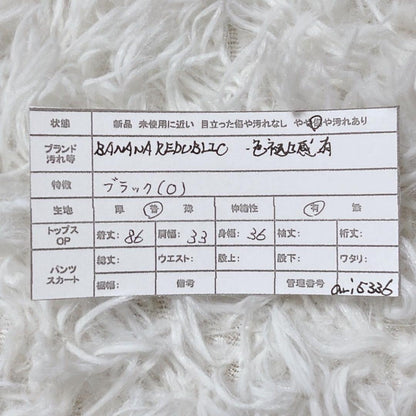 状態 新品 未使用に近い 目立った傷や汚れなし やや傷や汚れあり
ブランド 汚れ等 BANANA REPUBLIC ・色褪せ感有
特徴 ブラック(0)
生地 厚 普 薄 伸縮性 有 無
トップス OP 着丈: 86 肩幅: 33 身幅: 36 袖丈: 裄丈:
パンツ スカート 総丈: ウエスト: 股上: 股下: ワタリ:
裾幅: 備考 管理番号 5336